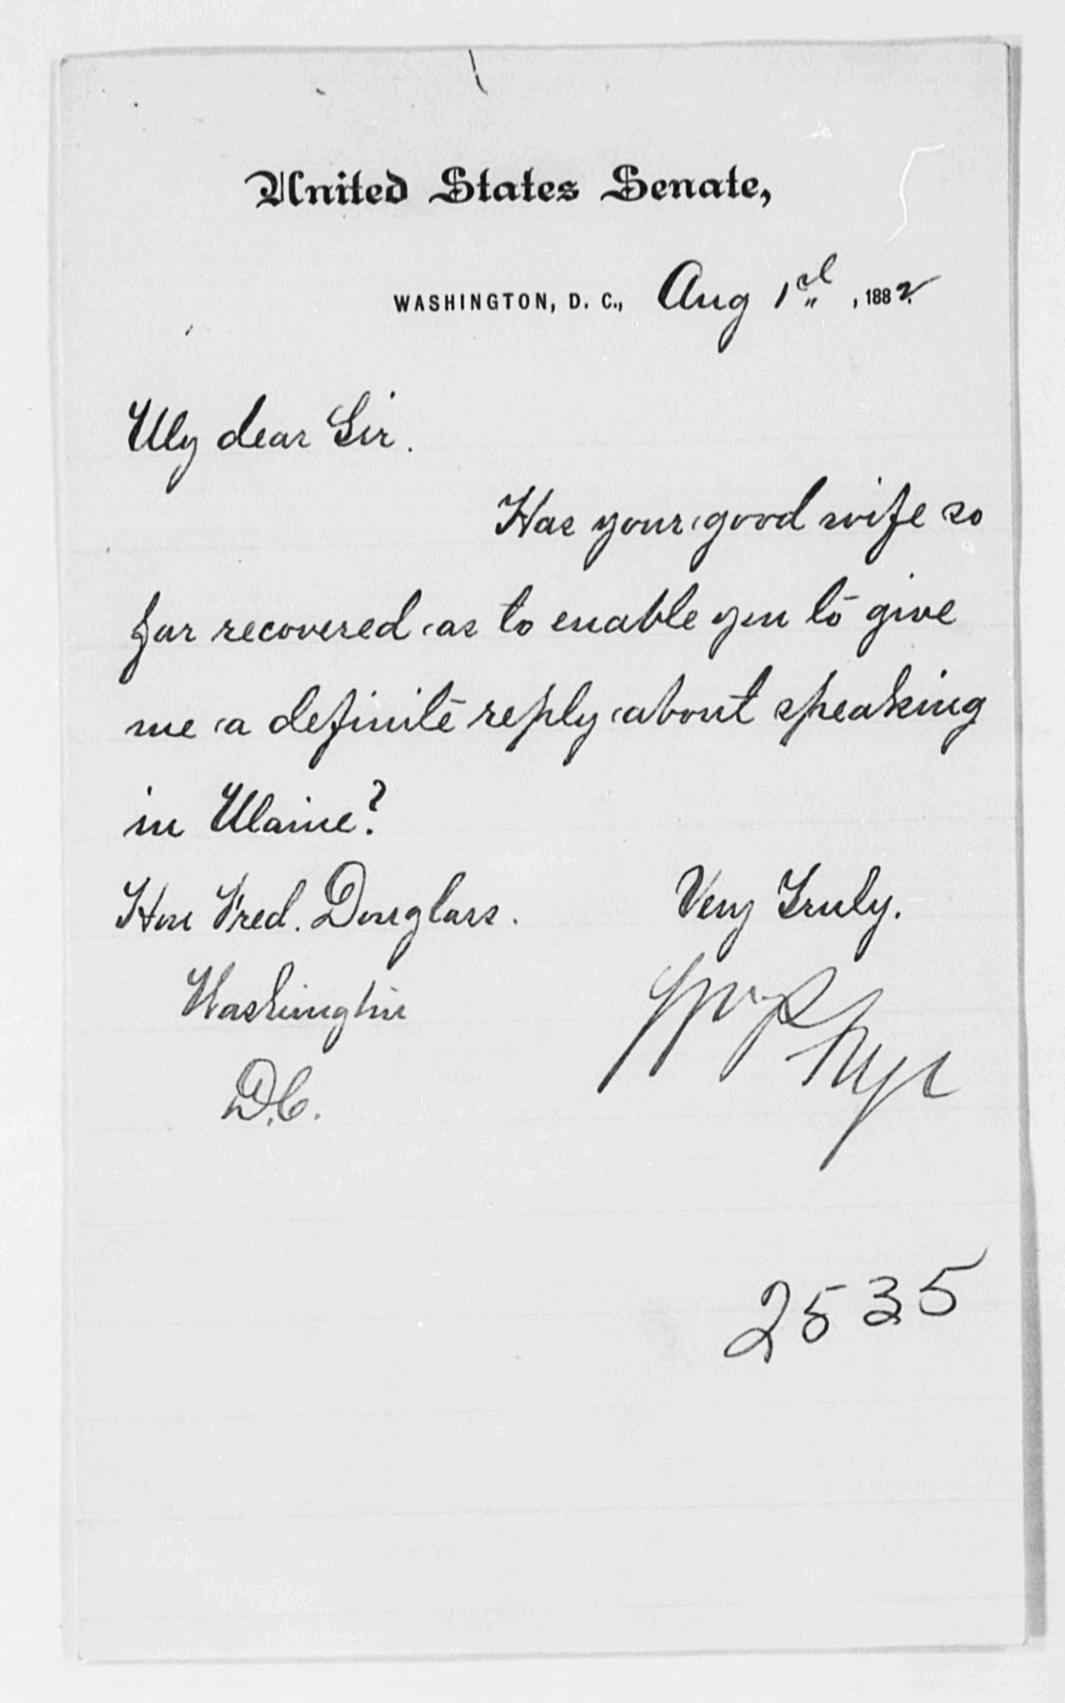 United States Senate,
WASHINGTON, D. C., Aug 1st, 1882.
My dear Sir.
Has your good wife so
far recovered as to enable you to give
me a definite reply about speaking
in Maine?
Hon Fred. Douglass. Very Truly.
Washington
D.C. Frye
2535